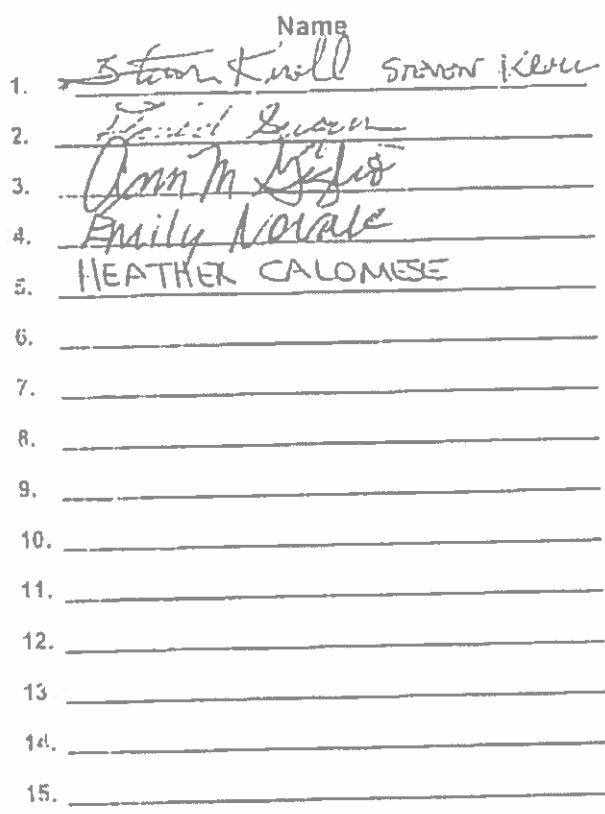 Name
1. Steven Kroll STEVEN
2. David
3. Ann M
4. Emily Novak
5. HEATHER CALOMESE
6.
7.
8.
9.
10.
11.
12.
13
14.
15.